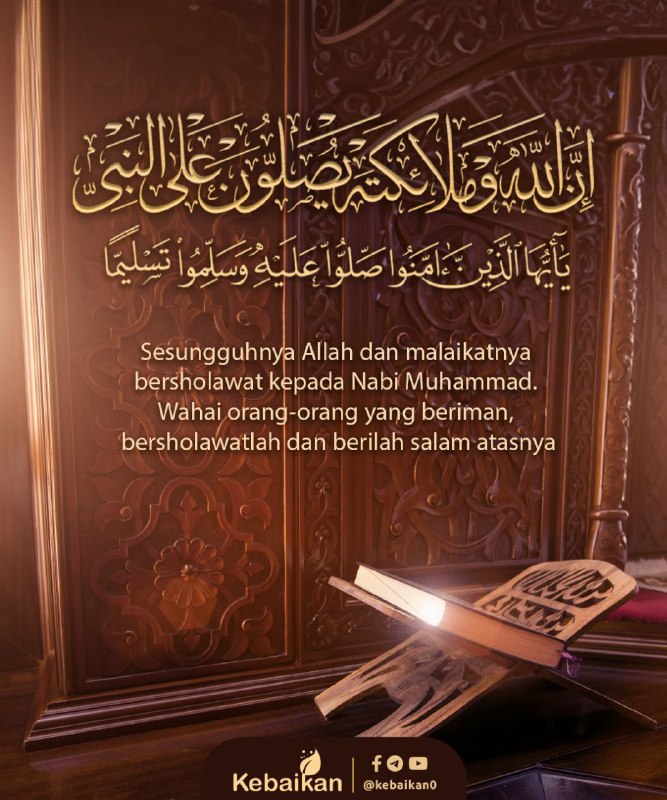 إِنَّ اللَّهَ وَمَلَائِكَتَهُ يُصَلُّونَ عَلَى النَّبِيِّ
يَٰٓأَيُّهَا ٱلَّذِينَ ءَامَنُوا۟ صَلُّوا۟ عَلَيْهِ وَسَلِّمُوا۟ تَسْلِيمًا
Sesungguhnya Allah dan malaikatnya
bersholawat kepada Nabi Muhammad.
Wahai orang-orang yang beriman,
bersholawatlah dan berilah salam atasnya
Kebaikan
@kebaikan0